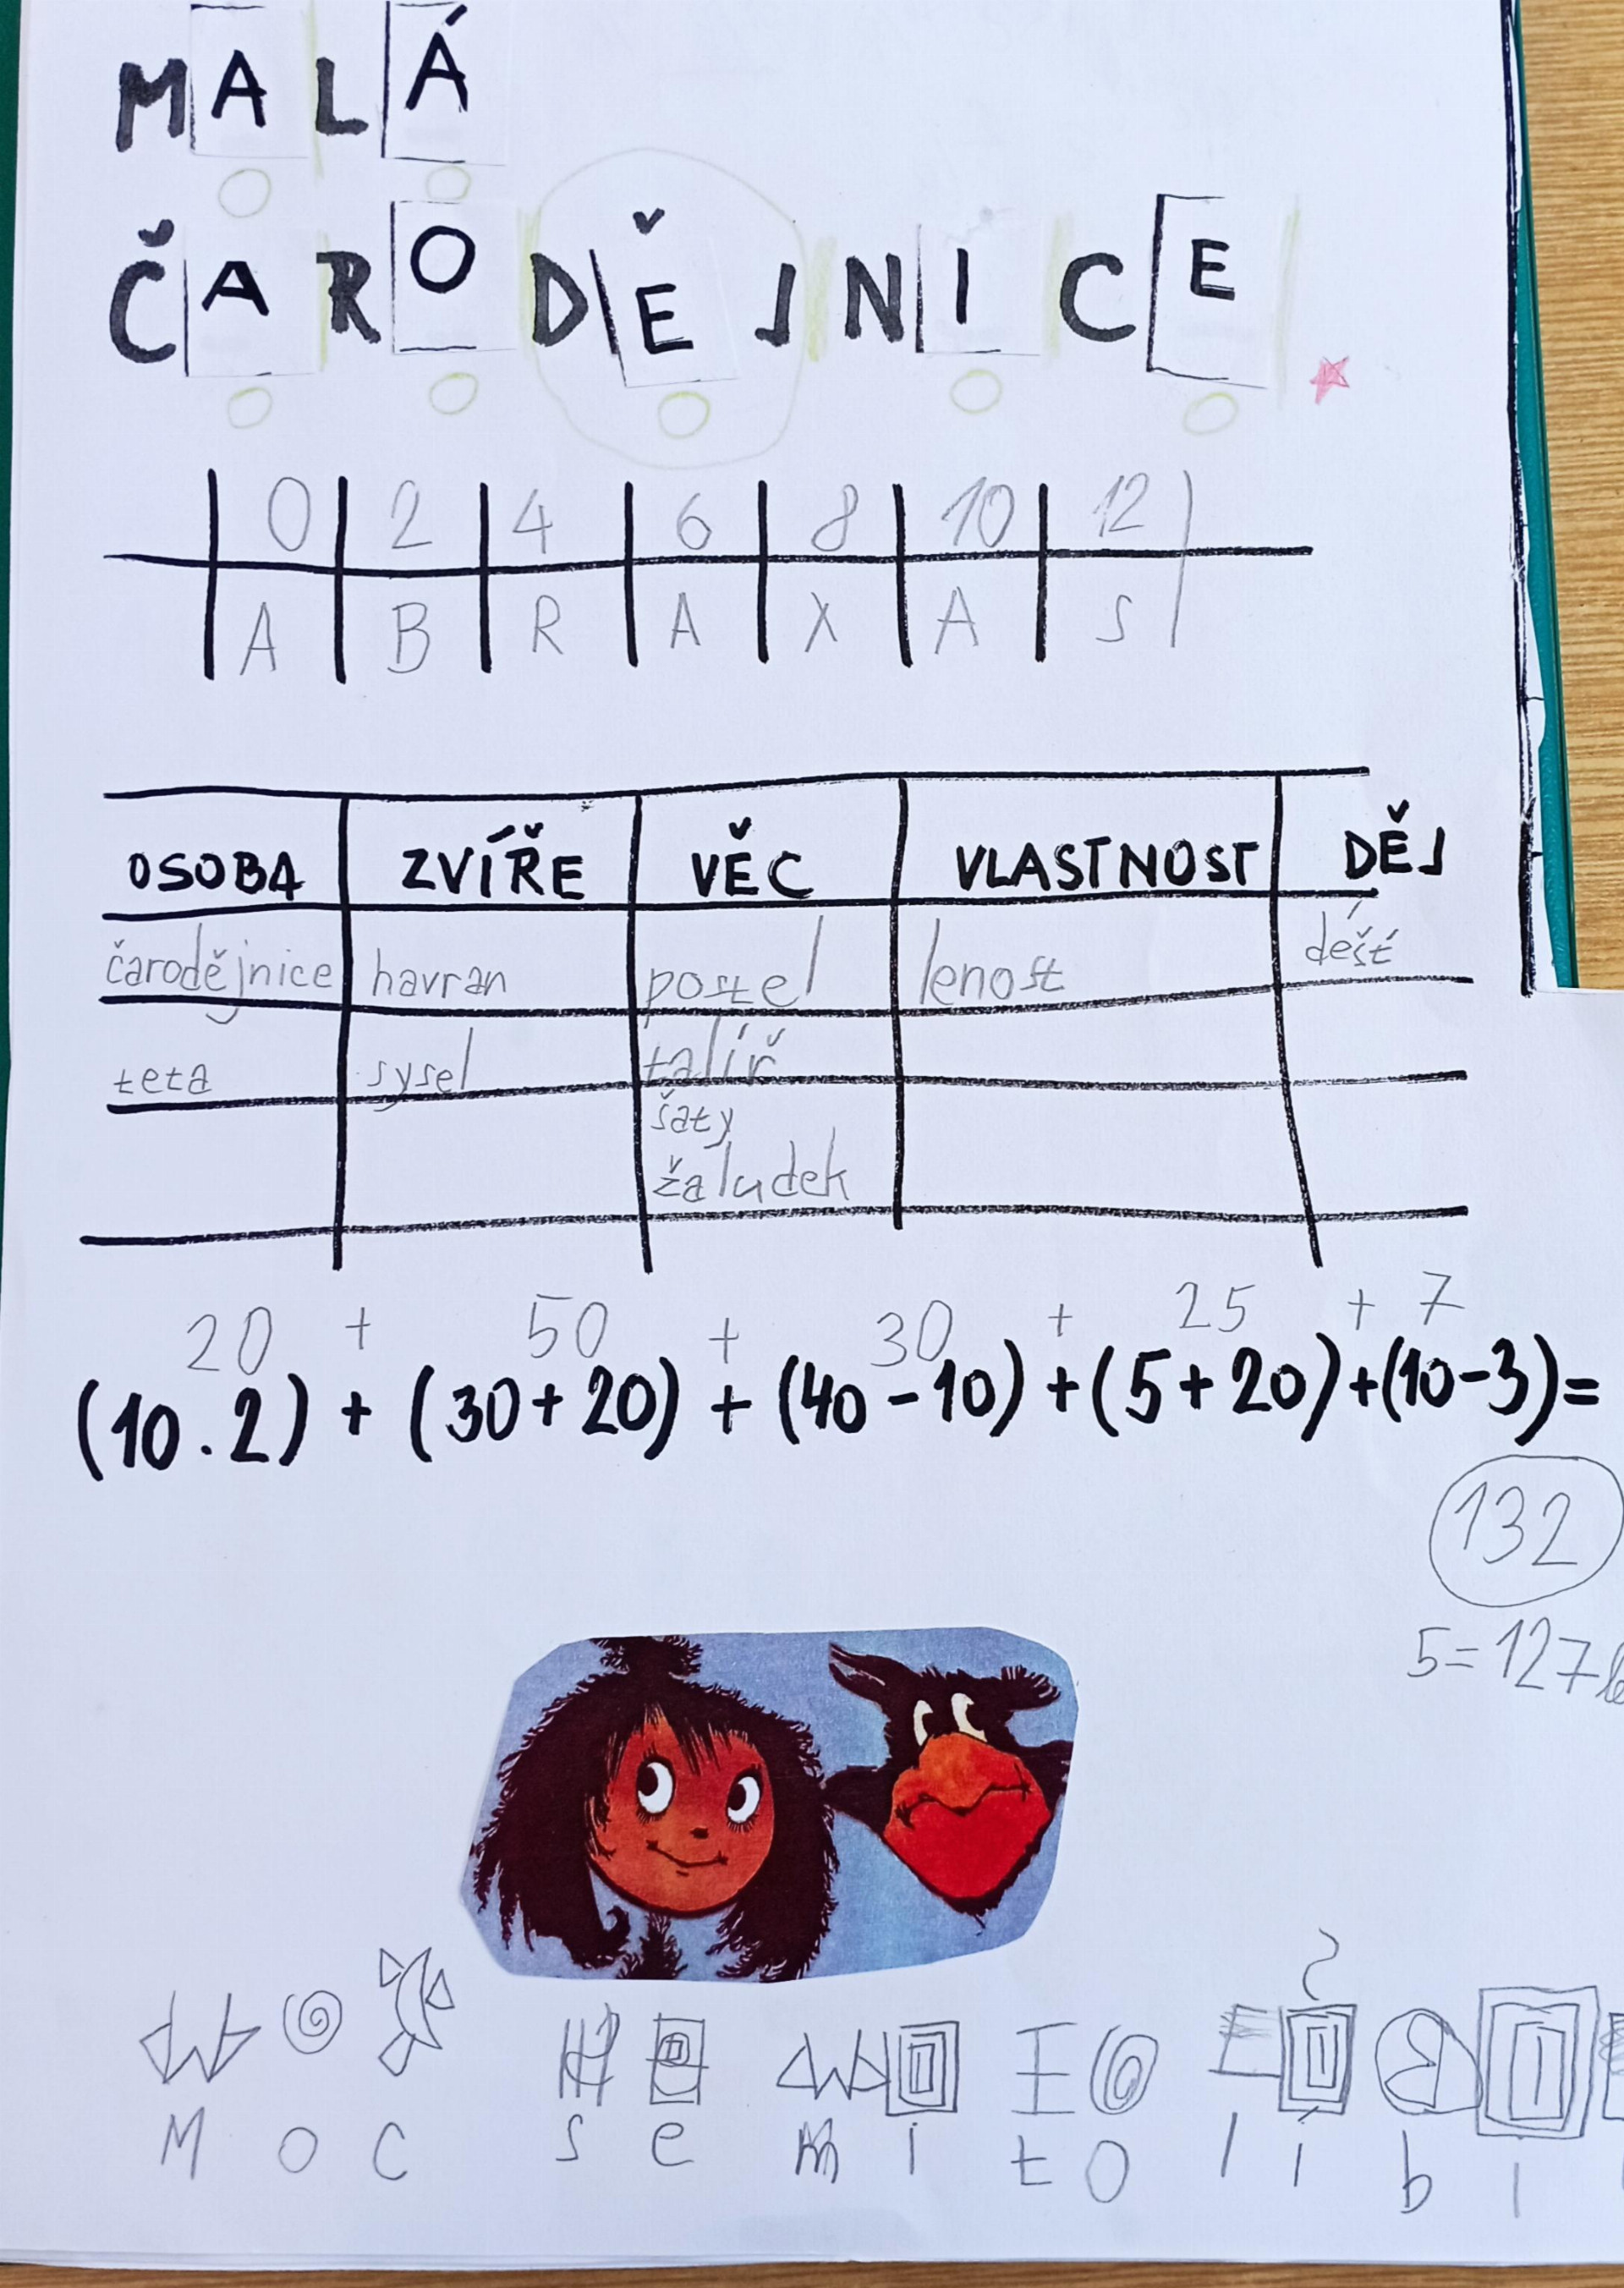 MALÁ
ČARODĚJNICE
0 2 4 6 8 10 12
A B R A X A S
OSOBA ZVÍŘE VĚC VLASTNOST DĚJ
čarodějnice havran postel lenost déšť
teta sysel talíř
šaty
žaludek
20 + 50 + 30 + 25 + 7
(10.2) + (30+20) + (40-10) + (5+20) + (10-3) =
132
5=127
M o c s e m i t o l í b i